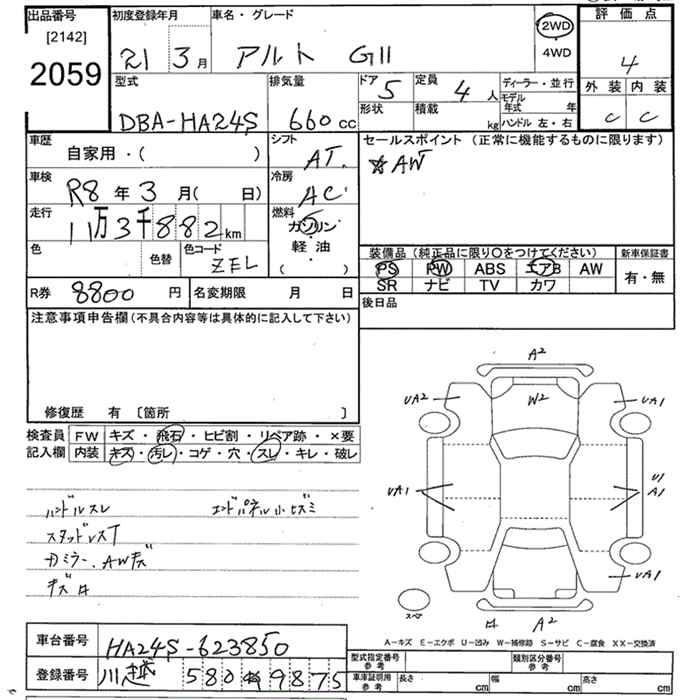 出品番号 [2142] 2059
初度登録年月 21 3月
車名・グレード アルト GII
2WD 4WD
評価点 4
外装 C 内装 C
型式 DBA-HA24S
排気量 660 cc
ドア 5 定員 4 人
形状 積載 kg
ディーラー・並行
モデル年式 年
ハンドル 左・右
車歴 自家用・( )
シフト AT
セールスポイント(正常に機能するものに限ります)
AW
車検 R8年3月( 日)
冷房 AC
走行 11万3千882km
燃料 ガソリン 軽油 ( )
色 色替 色コード ZEL
装備品(純正品に限り○をつけてください)
PS PW ABS エアB AW
SR ナビ TV カワ
新車保証書 有・無
R券 8800円 名変期限 月 日
後日品
注意事項申告欄(不具合内容等は具体的に記入して下さい)
修復歴 有 〔箇所 〕
検査員記入欄
FW キズ・飛石・ヒビ割・リペア跡・×要
内装 キズ・汚レ・コゲ・穴・スレ・キレ・破レ
ハンドルスレ エンドパネル小ヒズミ
スタッドレスT
カミラー、AWキズ
A2
UA2 W2 UA1
UA1 U1 A1
UA1
スペア
A2
A-キズ E-エクボ U-凹み W-補修跡 S-サビ C-腐食 XX-交換済
車台番号 HA24S-623850
登録番号 川越 580 9875
型式指定番号 参考 類別区分番号 参考
車庫証明用 参考 長さ cm 幅 cm 高さ cm